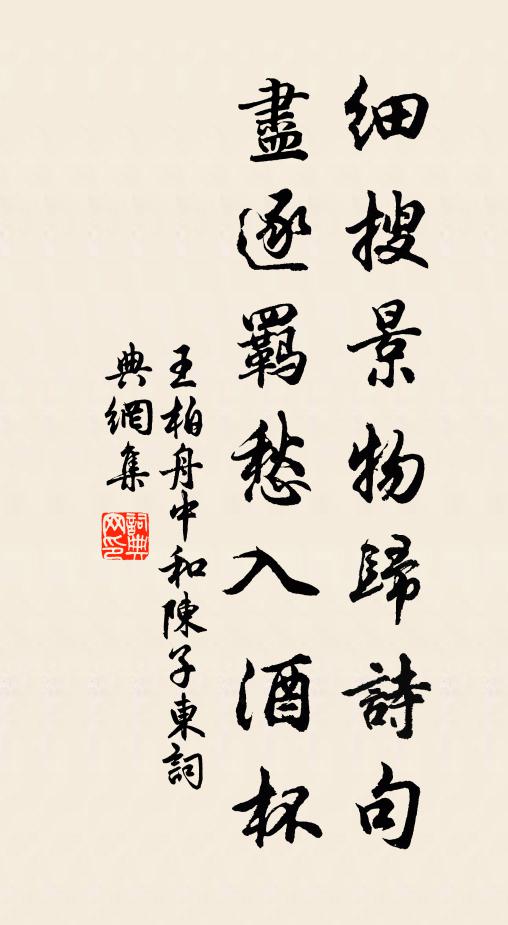 細搜景物歸詩句
盡逐羈愁入酒杯
王柏舟中和陳子東詞
典網集
詞典網印